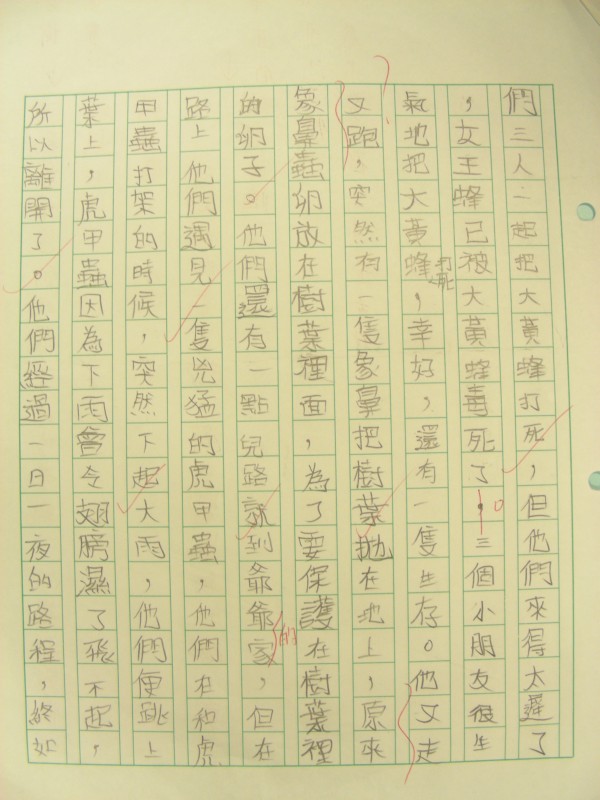 們三人一起把大黃蜂打死，但他們來得太遲了
，女王蜂已被大黃蜂毒死了。三個小朋友很生
氣地把大黃蜂打死，幸好，還有一隻生存。他又走
又跑，突然有一隻象鼻把樹葉拋在地上，原來
象鼻蟲卵放在樹葉裡面，為了要保護在樹葉裡
的卵子。他們還有一點兒路就到爺爺的家，但在
路上他們遇見一隻兇猛的虎甲蟲，他們在和虎
甲蟲打架的時候，突然下起大雨，他們便跳上
葉上，虎甲蟲因為下雨會令翅膀濕了飛不起，
所以離開了。他們經過一日一夜的路程，終如